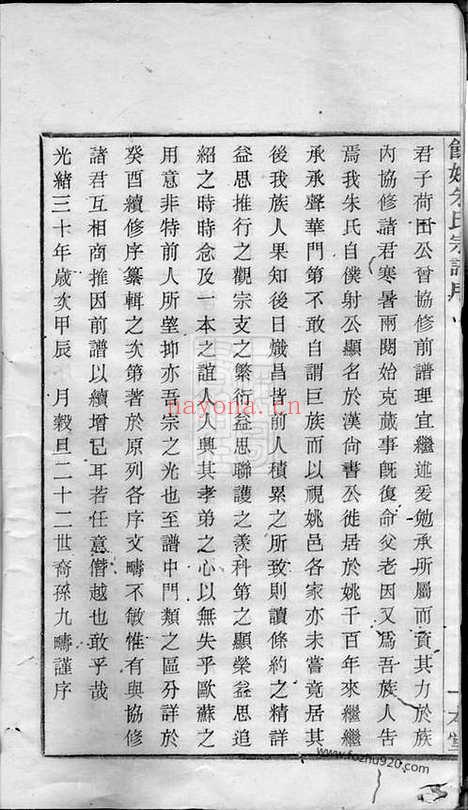 餘姚朱氏宗譜序
一本堂
君子荷田公曾協修前譜理宜繼述爰勉承所屬而貧其力於族
內協修諸君寒暑兩閱始克蕆事旣復命父老因又爲吾族人告
焉我朱氏自僕射公顯名於漢尙書公徙居於姚千百年來繼繼
承承聲華門第不敢自謂巨族而以視姚邑各家亦未嘗竟居其
後我族人果知後日熾昌皆前人積累之所致則讀條約之精詳
益思推行之觀宗支之繁衍益思聯護之羨科第之顯榮益思追
紹之時時念及一本之誼人人大興其孝弟之心以無失乎歐蘇之
用意非特前人所望抑亦吾宗之光也至譜中門類之區分詳於
癸酉續修序纂輯之次第著於原列各序文疇不敏惟有與協修
諸君互相商推因前譜以續增已耳若任意僭越也敢乎哉
光緒三十年歲次甲辰 月穀旦二十二世裔孫九疇謹序
nayona.com
www.fozhu920.com